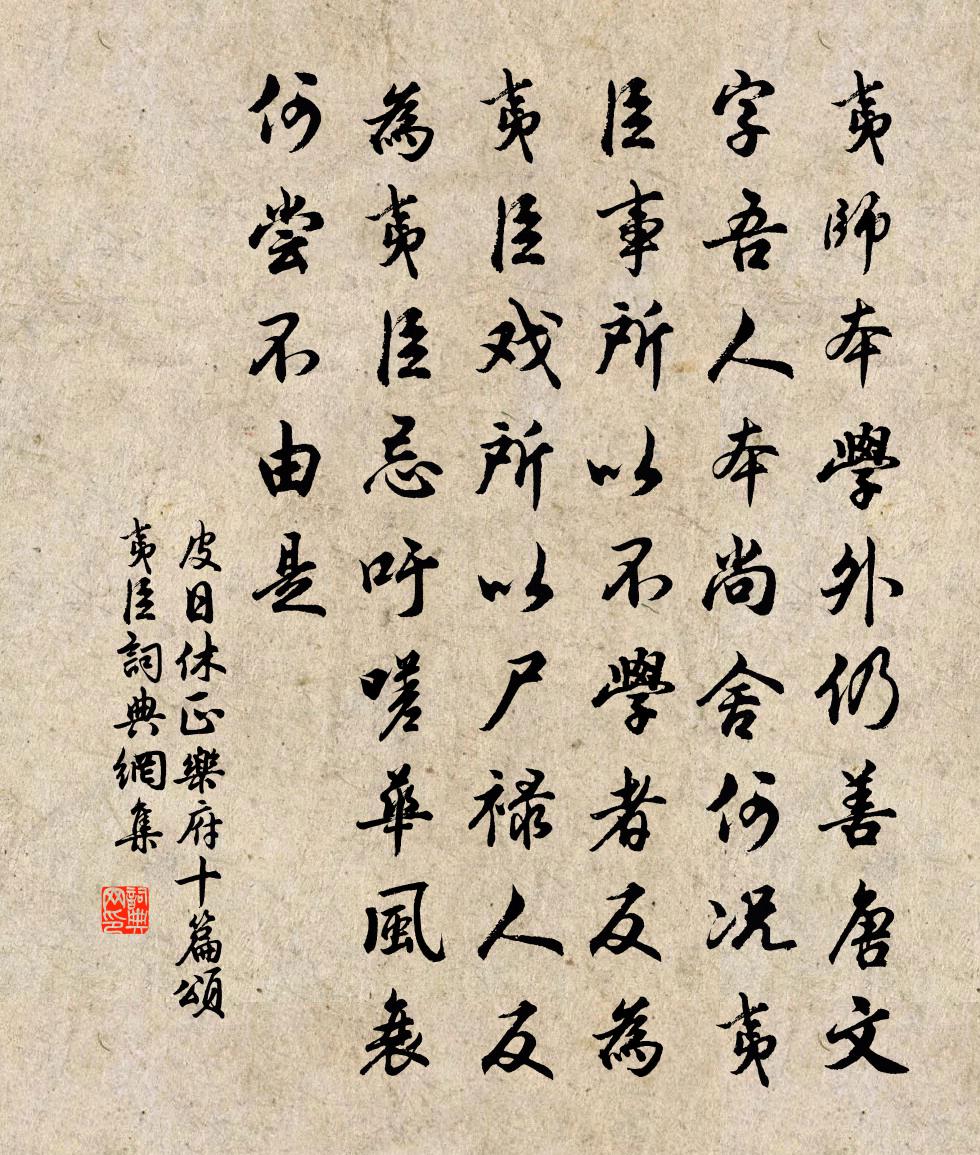 夷師本學外仍善唐文
字吾人本尚舍何况夷
臣事所以不學者反為
夷臣戏所以尸禄人反
為夷臣忌吁嗟華風衰
何尝不由是
皮日休正樂府十篇頌
夷臣詞典網集
詞典
网印